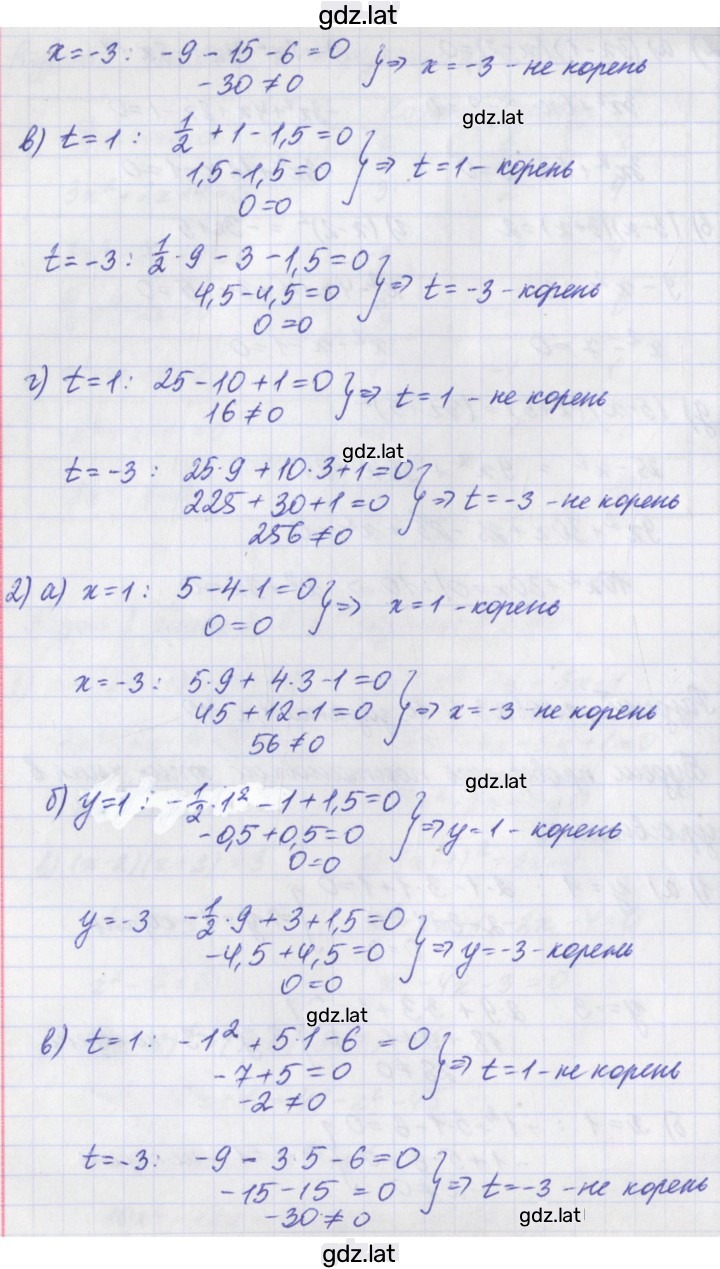 gdz.lat
x=-3: -9-15-6=0
-30≠0 } => x=-3 - не корень
gdz.lat
в) t=1: 1/2+1-1,5=0
1,5-1,5=0 } => t=1 - корень
0=0
t=-3: 1/2·9-3-1,5=0
4,5-4,5=0 } => t=-3 - корень
0=0
г) t=1: 25-10+1=0
16≠0 } => t=1 - не корень
gdz.lat
t=-3: 25·9+10·3+1=0
225+30+1=0 } => t=-3 - не корень
256≠0
2) а) x=1: 5-4-1=0
0=0 } => x=1 - корень
x=-3: 5·9+4·3-1=0
45+12-1=0 } => x=-3 - не корень
56≠0
gdz.lat
б) y=1: -1/2·1²-1+1,5=0
-0,5+0,5=0 } => y=1 - корень
0=0
y=-3 -1/2·9+3+1,5=0
-4,5+4,5=0 } => y=-3 - корень
0=0
gdz.lat
в) t=1: -1²+5·1-6=0
-7+5=0 } => t=1 - не корень
-2≠0
t=-3: -9-3·5-6=0
-15-15=0 } => t=-3 - не корень
-30≠0
gdz.lat
gdz.lat